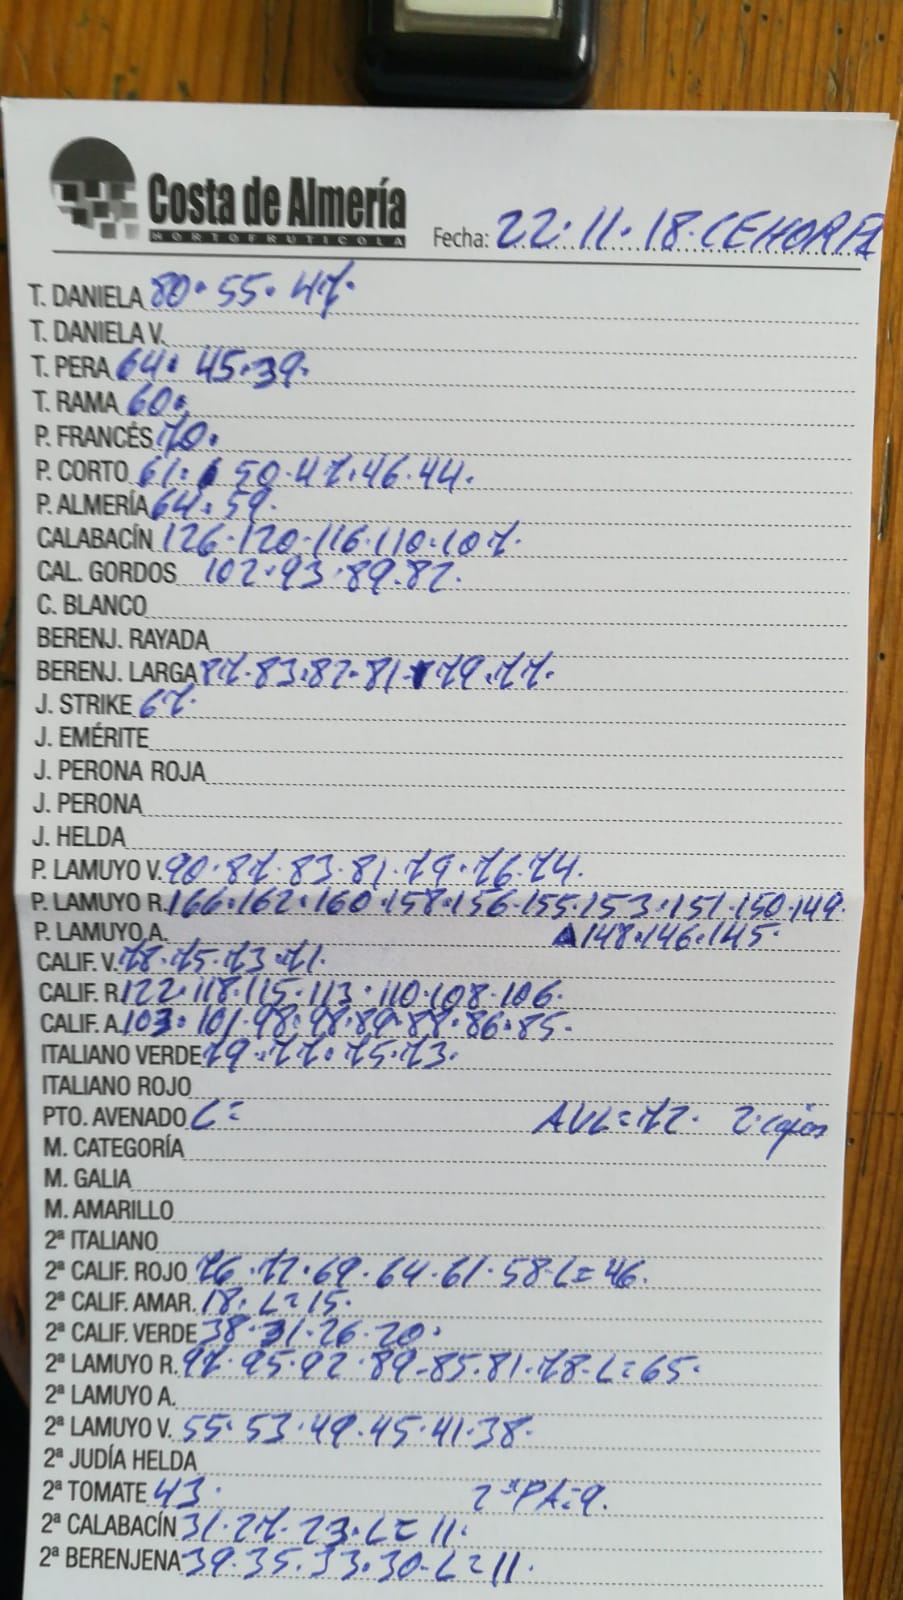 Costa de Almería
HORTOFRUTICOLA
Fecha: 22·11·18·CEHORPA
T. DANIELA 80·55·47·
T. DANIELA V.
T. PERA 64·45·39·
T. RAMA 60·
P. FRANCÉS 70·
P. CORTO 61·50·47·46·44·
P. ALMERÍA 64·59·
CALABACÍN 126·120·116·110·107·
CAL. GORDOS 102·93·89·82·
C. BLANCO
BERENJ. RAYADA
BERENJ. LARGA 87·83·82·81·79·77·
J. STRIKE 67·
J. EMÉRITE
J. PERONA ROJA
J. PERONA
J. HELDA
P. LAMUYO V. 90·87·83·81·79·76·74·
P. LAMUYO R. 166·162·160·158·156·155·153·151·150·149·
P. LAMUYO A. 148·146·145·
CALIF. V. 78·75·73·71·
CALIF. R. 122·118·115·113·110·108·106·
CALIF. A. 103·101·98·98·89·88·86·85·
ITALIANO VERDE 79·77·75·73·
ITALIANO ROJO
PTO. AVENADO L= AVL=72· 2·cajas
M. CATEGORÍA
M. GALIA
M. AMARILLO
2ª ITALIANO
2ª CALIF. ROJO 76·72·69·64·61·58·L=46·
2ª CALIF. AMAR. 18·L=15·
2ª CALIF. VERDE 38·31·26·20·
2ª LAMUYO R. 97·95·92·89·85·81·78·L=65·
2ª LAMUYO A.
2ª LAMUYO V. 55·53·49·45·41·38·
2ª JUDÍA HELDA
2ª TOMATE 43· 2ªPA=9·
2ª CALABACÍN 31·27·23·L=11·
2ª BERENJENA 39·35·33·30·L=11·